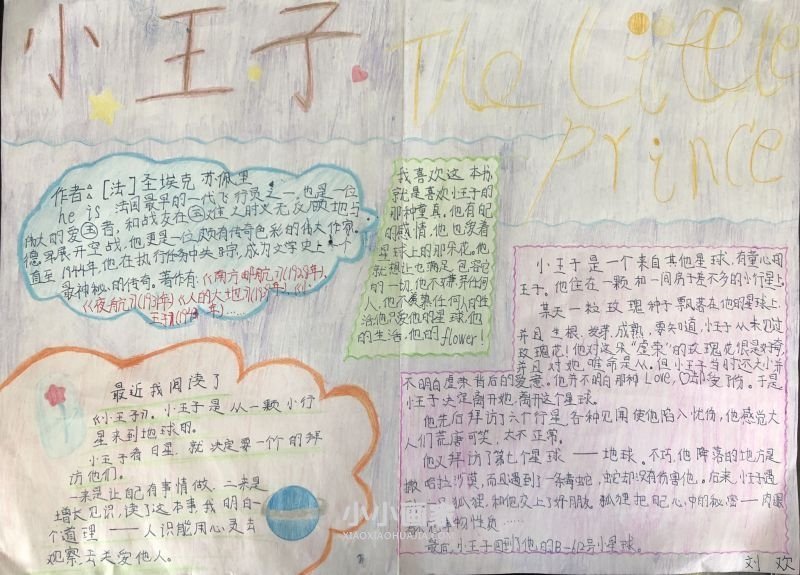 小王子
The Little
Prince
作者：[法]圣埃克 苏佩里
he is 法国最早的一代飞行员之一,也是一位
伟大的爱国者，和战友在国难之时义无反顾地与
德军展开空战,他更是一位颇有传奇色彩的伟大作家。
直至1944年,他在执行任务中失踪,成为文学史上一个
最神秘的传奇。著作有:《南方邮航》(1929年)、
《夜航》(1931年)《人的大地》(1939年)、《小
王子》
我喜欢这本书
就是喜欢小王子的
那种童真。他有自己
的感情,他也爱着
星球上的那朵花。他
就想让也满足,包容它
的一切,他不
人,他不羡慕任何人的生
活,他只爱他的星球,他
的生活,他的flower!
小王子是一个来自其他星球,有童心的
王子,他住在一颗和一间房子差不多的小行星上,
某天一粒玫瑰种子飘落在他的星球上
并且生根、发芽,成熟,要知道,小王子从未见过
玫瑰花!他对这朵"虚荣"的玫瑰花很是好奇,
并且对她,唯命是从。但小王子当时还太小并
不明白虚荣背后的爱意。他并不明白那种Love,受了伤。于是,
小王子决定离开她,离开这个星球。
他先后拜访了六个行星,各种见闻使他陷入忧伤,他感觉大
人们荒唐可笑、太不正常。
他又拜访了第七个星球——地球。不巧,他降落的地方是
撒哈拉沙漠,而且遇到了一条毒蛇,蛇却没有伤害他。后来,小王子遇
狐狸,和他交上了好朋友。狐狸把自己心中的秘密——肉眼
事物性质……
最后,小王子回到了他的B-612号小星球。
最近我阅读了
《小王子》。小王子是从一颗小行
星来到地球的。
小王子看日星,就决定要一个的拜
访他们。
一来是让自己有事情做,二来是
增长见识,读了这本书我明白一
个道理——人只能用心灵去
观察,去关爱他人。
刘欢
小小画家
XIAOXIAOHUAJIA.CN